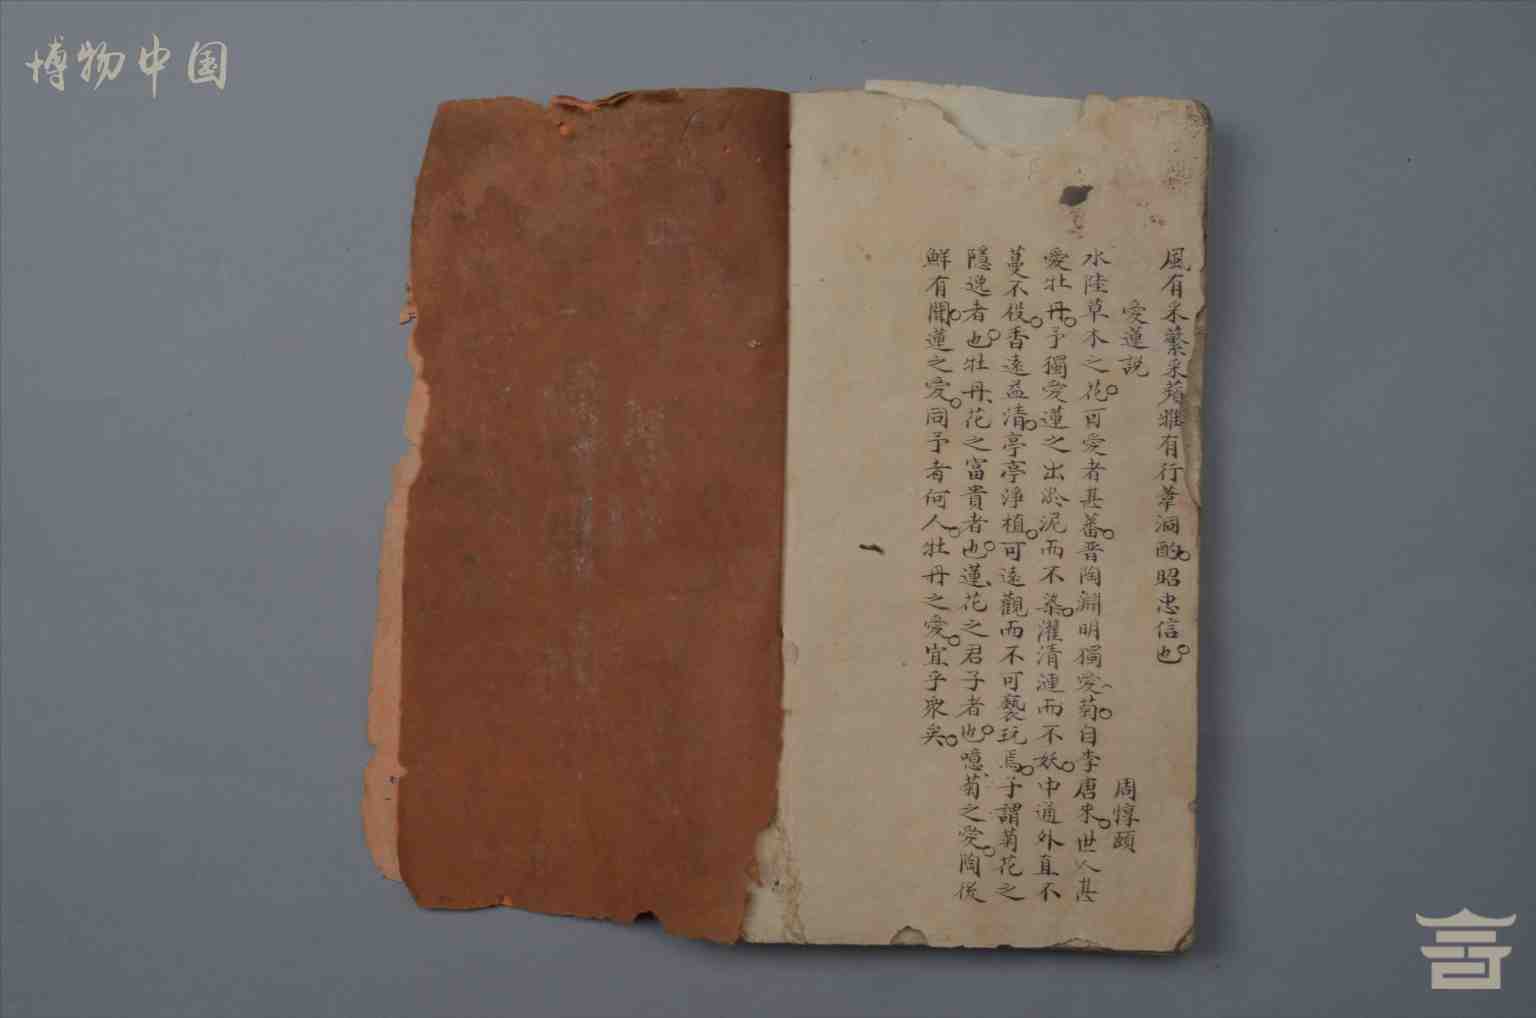 博物中国
風有采蘩采蘋雅有行葦泂酌。昭忠信也。
愛蓮説
周惇頤
水陸草木之花。可愛者甚蕃。晋陶淵明獨愛菊。自李唐来。世人甚
愛牡丹。予獨愛蓮之出淤泥而不染。濯清漣而不妖。中通外直不
蔓不役。香遠益清。亭亭淨植。可遠觀而不可褻玩焉。予謂菊花之
隱逸者也。牡丹、花之富貴者也。蓮、花之君子者也。噫、菊之愛。陶後
鮮有聞。蓮之愛。同予者何人。牡丹之愛。宜乎眾矣。